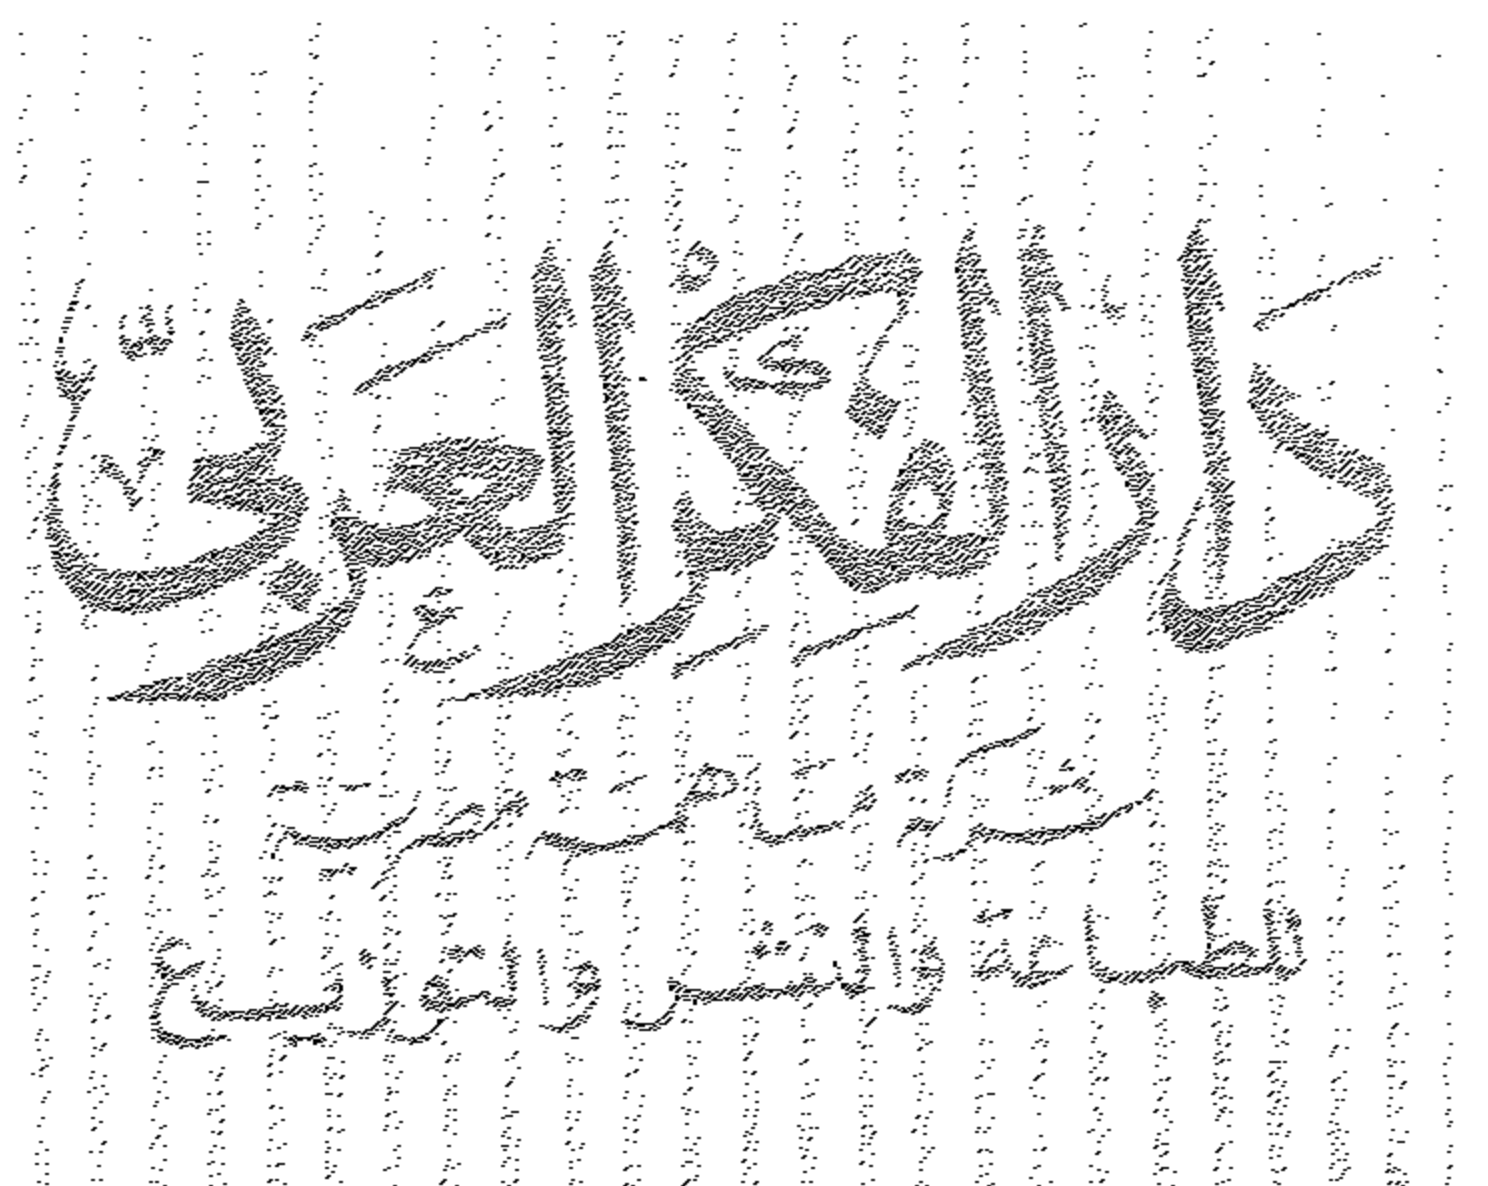 دار الفكر العربي
شركة مساهمة مصرية
للطباعة والنشر والتوزيع